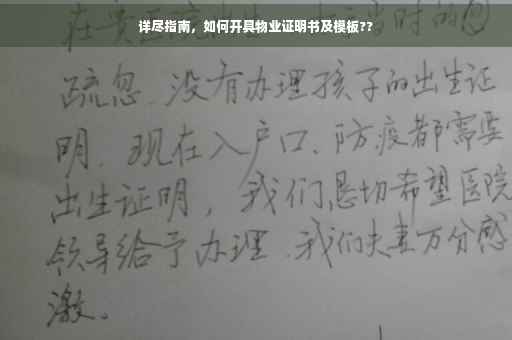 详尽指南，如何开具物业证明书及模板??
疏忽.没有办理孩子的出生证
明.现在入户口、防疫都需要
出生证明，我们恳切希望医院
领导给予办理.我们夫妻万分感
激。